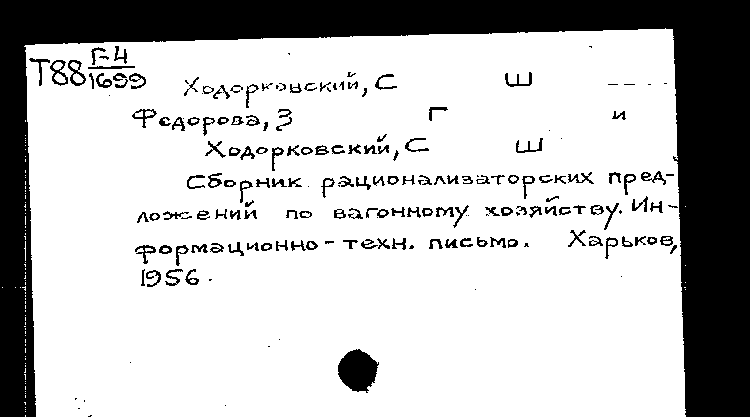 Т88 Г-4
1699
Ходорковский, С Ш
Федорова, З Г и
Ходорковский, С Ш
Сборник рационализаторских пред-
ложений по вагонному хозяйству. Ин-
формационно-техн. письмо. Харьков,
1956.